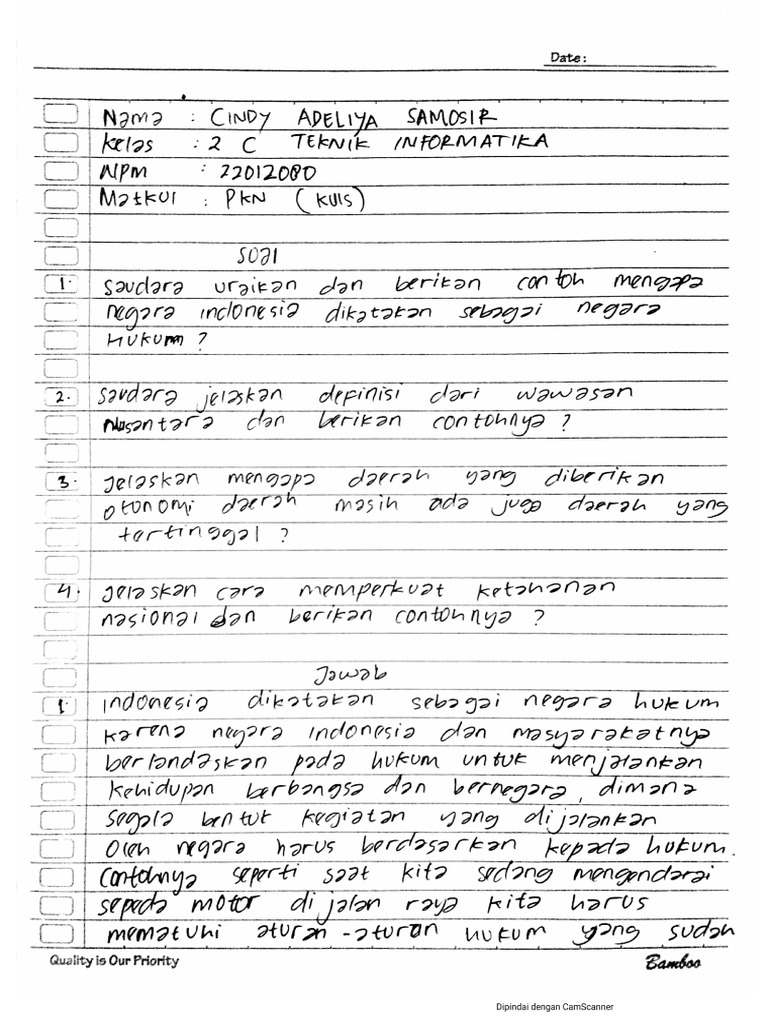 Date:
Nama : CINDY ADELIYA SAMOSIR
Kelas : 2 C TEKNIK INFORMATIKA
NPM : 22012080
Matkul : PKN (KUIS)
Soal
1. Saudara uraikan dan berikan contoh mengapa
negara indonesia dikatakan sebagai negara
Hukum ?
2. Saudara jelaskan definisi dari wawasan
Nusantara dan berikan contohnya ?
3. Jelaskan mengapa daerah yang diberikan
otonomi daerah masih ada juga daerah yang
tertinggal ?
4. Jelaskan cara memperkuat ketahanan
nasional dan berikan contohnya ?
Jawab
1. indonesia dikatakan sebagai negara hukum
karena negara indonesia dan masyarakatnya
berlandaskan pada hukum untuk menjalankan
kehidupan berbangsa dan bernegara, dimana
segala bentuk kegiatan yang dijalankan
oleh negara harus berdasarkan kepada hukum.
Contohnya seperti saat kita sedang mengendarai
sepeda motor di jalan raya kita harus
mematuhi aturan-aturan hukum yang sudah
Quality is Our Priority
Bamboo
Dipindai dengan CamScanner